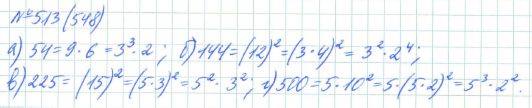 № 513 (548)
а) 54 = 9 · 6 = 3³ · 2 ; б) 144 = (12)² = (3 · 4)² = 3² · 2⁴ ;
в) 225 = (15)² = (5 · 3)² = 5² · 3² ; г) 500 = 5 · 10² = 5 · (5 · 2)² = 5³ · 2² .